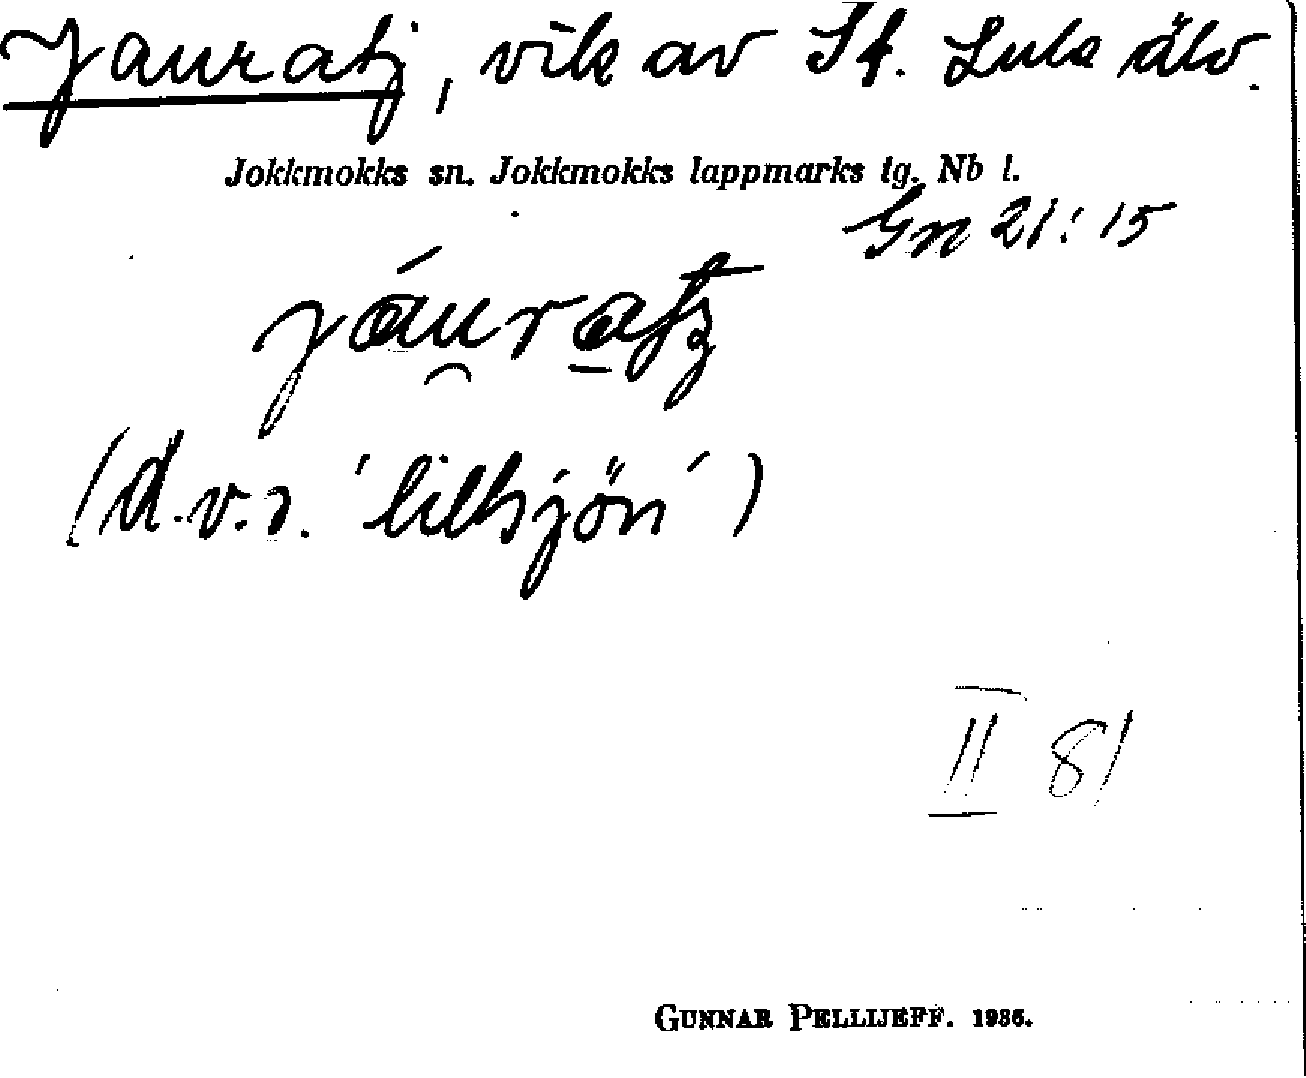 Jauratj, vik av St. Lule älv.
Jokkmokks sn. Jokkmokks lappmarks tg. Nb l.
Gn 21:15
(d.v.s. 'lillsjön')
II 81
GUNNAR PELLIJEFF. 1936.